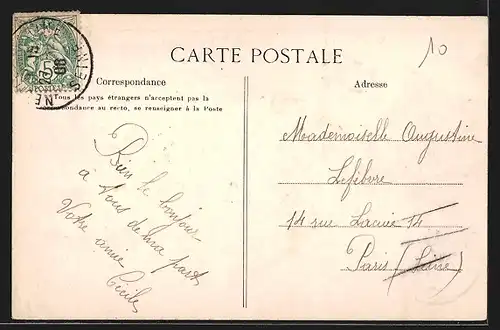 CARTE POSTALE
10
Correspondance
Tous les pays étrangers n'acceptent pas la
correspondance au recto, se renseigner à la Poste
Adresse
Bien le bonjour
à tous de ma part
Votre amie
Cécile
Mademoiselle Augustine
Lefèbvre
14 rue Lacue 14
Paris (Seine)